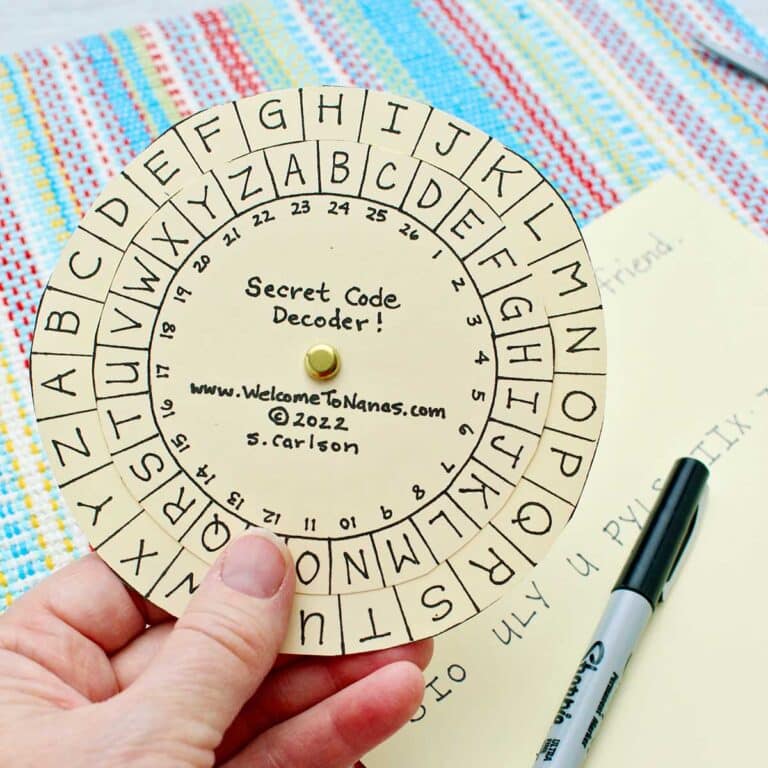 A B C D E F G H I J K L M N O P Q R S T U W X Y Z
A B C D E F G H I J K L M N O Q R S T U V W X Y Z
1 2 3 4 5 6 7 8 9 10 11 12 13 14 15 16 17 18 19 20 21 22 23 24 25 26
Secret Code
Decoder!
www.WelcomeToNanas.com
© 2022
s. carlson
friend.
SIO ULY U PYLS IIX
Sharpie
Permanent Marker
ULTRA